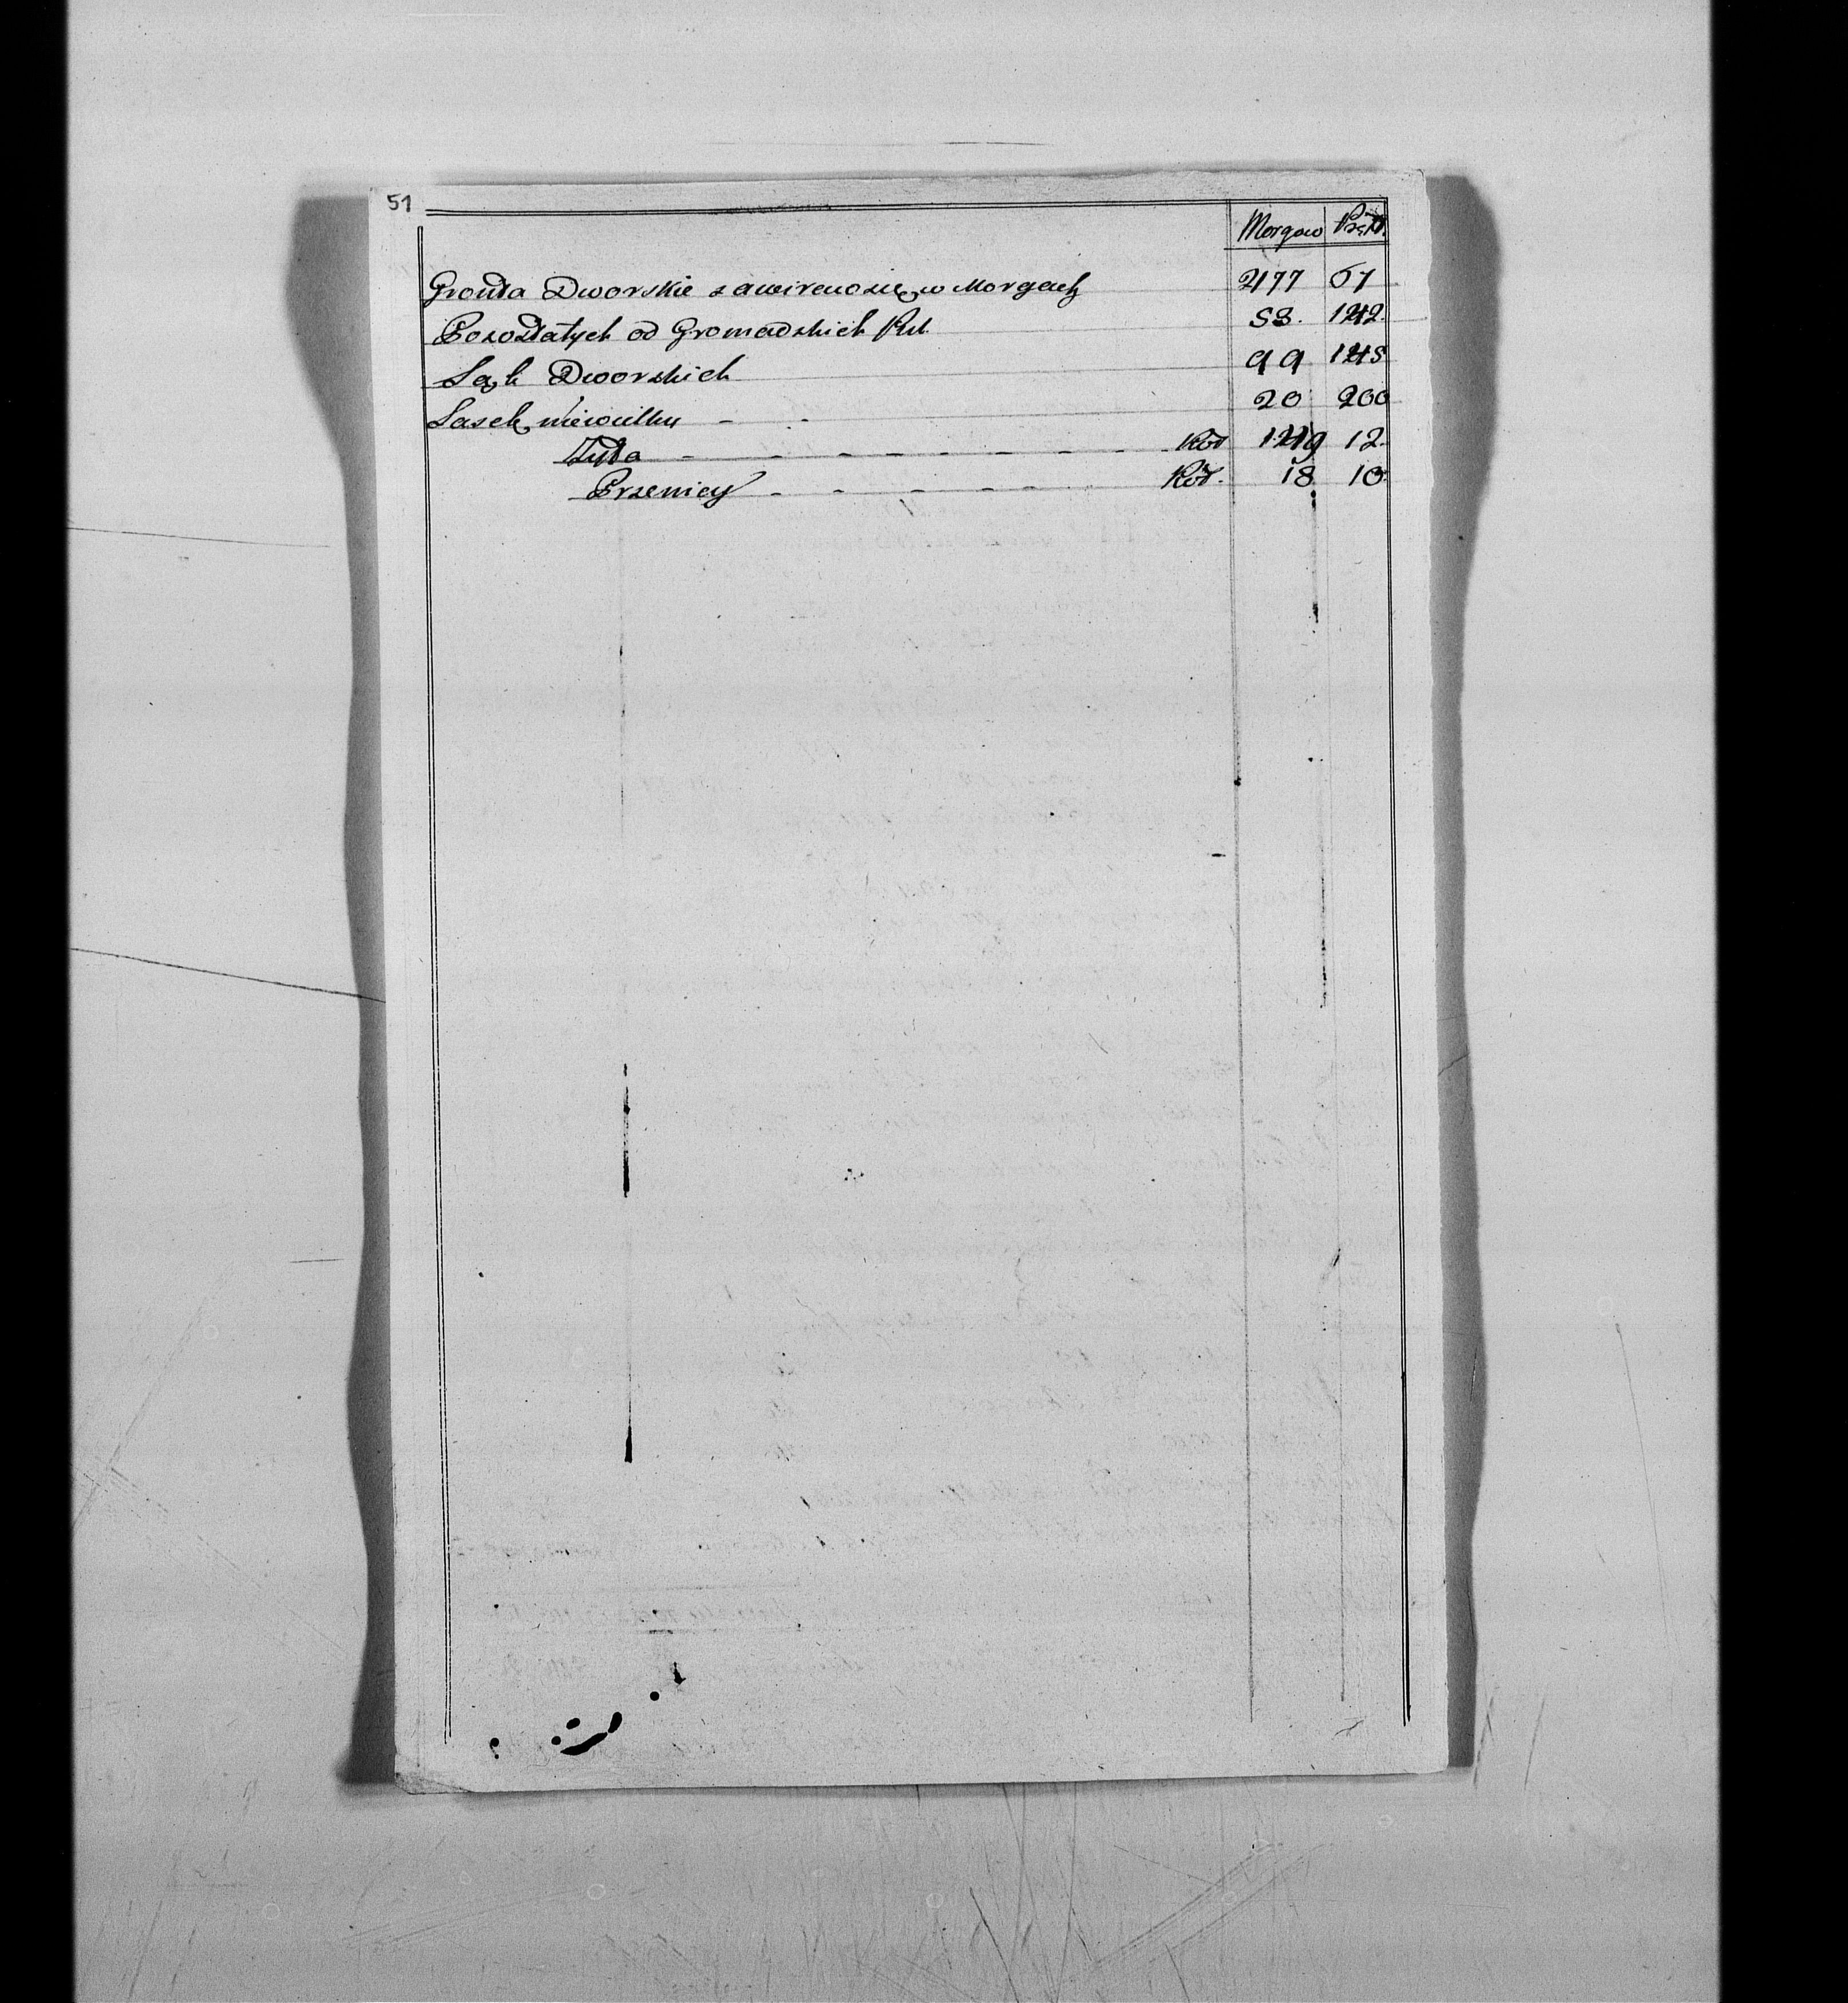 51
Morgow Prę:
Gronta Dworskie zawieraią się w Morgach 477 67
Pozostałych od Gromadzkich Pul 53. 142.
Łąk Dworskich 99 145
Lasek niewielku - - 20 200
Żyta - - - - - - - - Kóp 149 12.
Przenicy - - - - - - Kóp. 18 10.